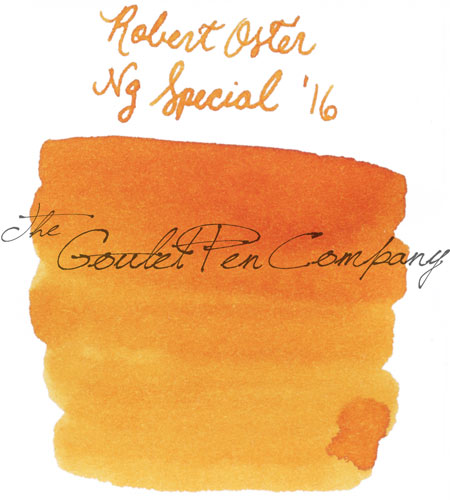 Robert Oster
Ng Special '16
The Goulet Pen Company